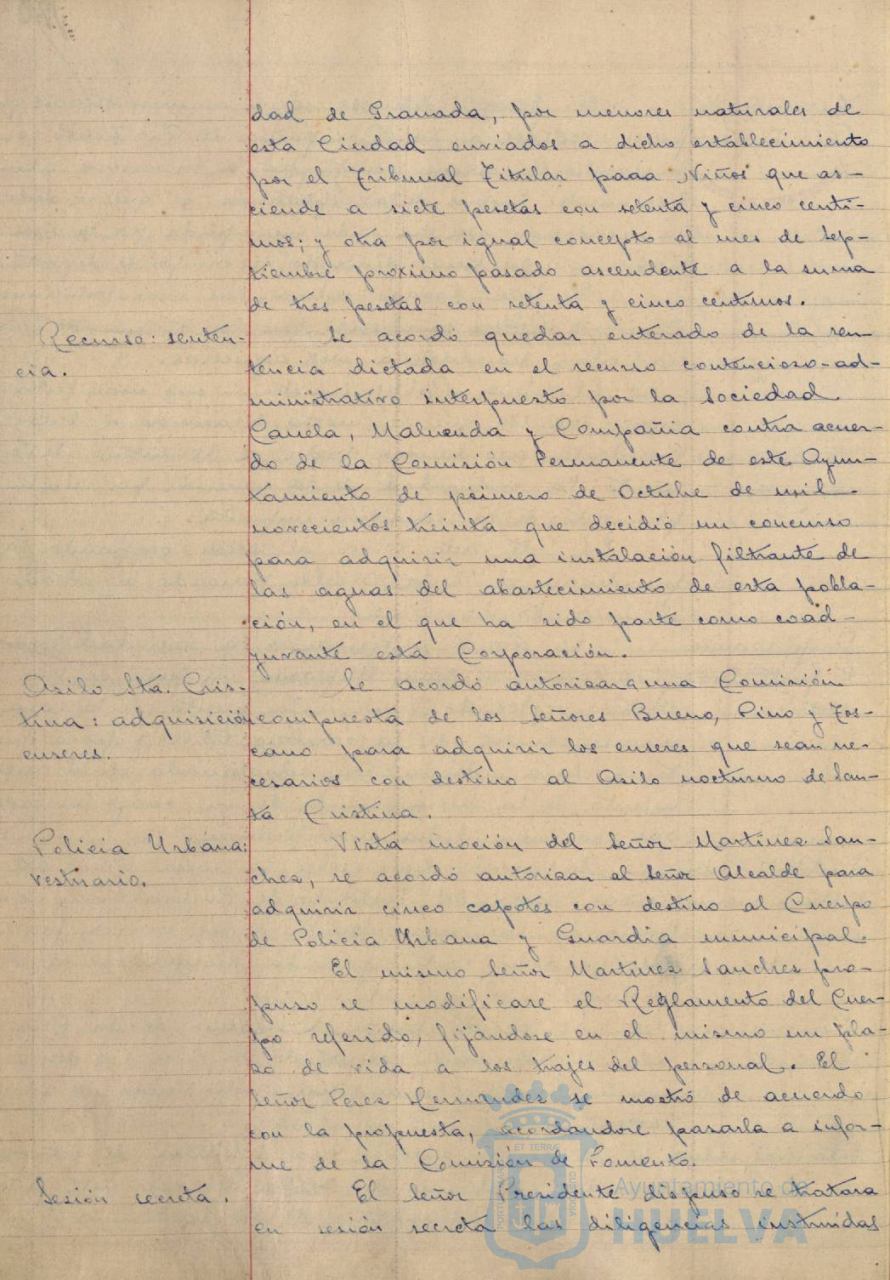 dad de Granada, por menores naturales de
esta Ciudad enviados a dicho establecimiento
por el Tribunal Titular para Niños que as-
ciende a siete pesetas con setenta y cinco centi-
mos; y otra por igual concepto al mes de Sep-
tiembre proximo pasado ascendente a la suma
de tres pesetas con setenta y cinco centimos.
Recurso: senten-
cia.
Se acordó quedar enterado de la sen-
tencia dictada en el recurso contencioso-ad-
ministrativo interpuesto por la Sociedad
Canela, Maluenda y Compañia contra acuer-
do de la Comisión Permanente de este Ayun-
tamiento de primero de Octubre de mil
novecientos treinta que decidió un concurso
para adquirir una instalación filtrante de
las aguas del abastecimiento de esta pobla-
ción, en el que ha sido parte como coad-
yuvante esta Corporación.
Asilo Sta. Cris-
tina: adquisición
enseres.
Se acordó autorizar a una Comisión
compuesta de los Señores Bueno, Pino y Tos-
cano para adquirir los enseres que sean ne-
cesarios con destino al Asilo nocturno de San-
ta Cristina.
Policia Urbana:
vestuario.
Vista moción del Señor Martinez San-
chez, se acordó autorizar al Señor Alcalde para
adquirir cinco capotes con destino al Cuerpo
de Policia Urbana y Guardia municipal.
El mismo Señor Martinez Sanchez pro-
puso se modificase el Reglamento del Cuer-
po referido, fijándose en el mismo un pla-
zo de vida a los trajes del personal. El
Señor Perez Hernandez se mostró de acuerdo
con la propuesta, acordandose pasarla a infor-
me de la Comisión de Fomento.
Sesión secreta.
El Señor Presidente dispuso se tratara
en sesión secreta las diligencias instruidas
Ayuntamiento de
HUELVA